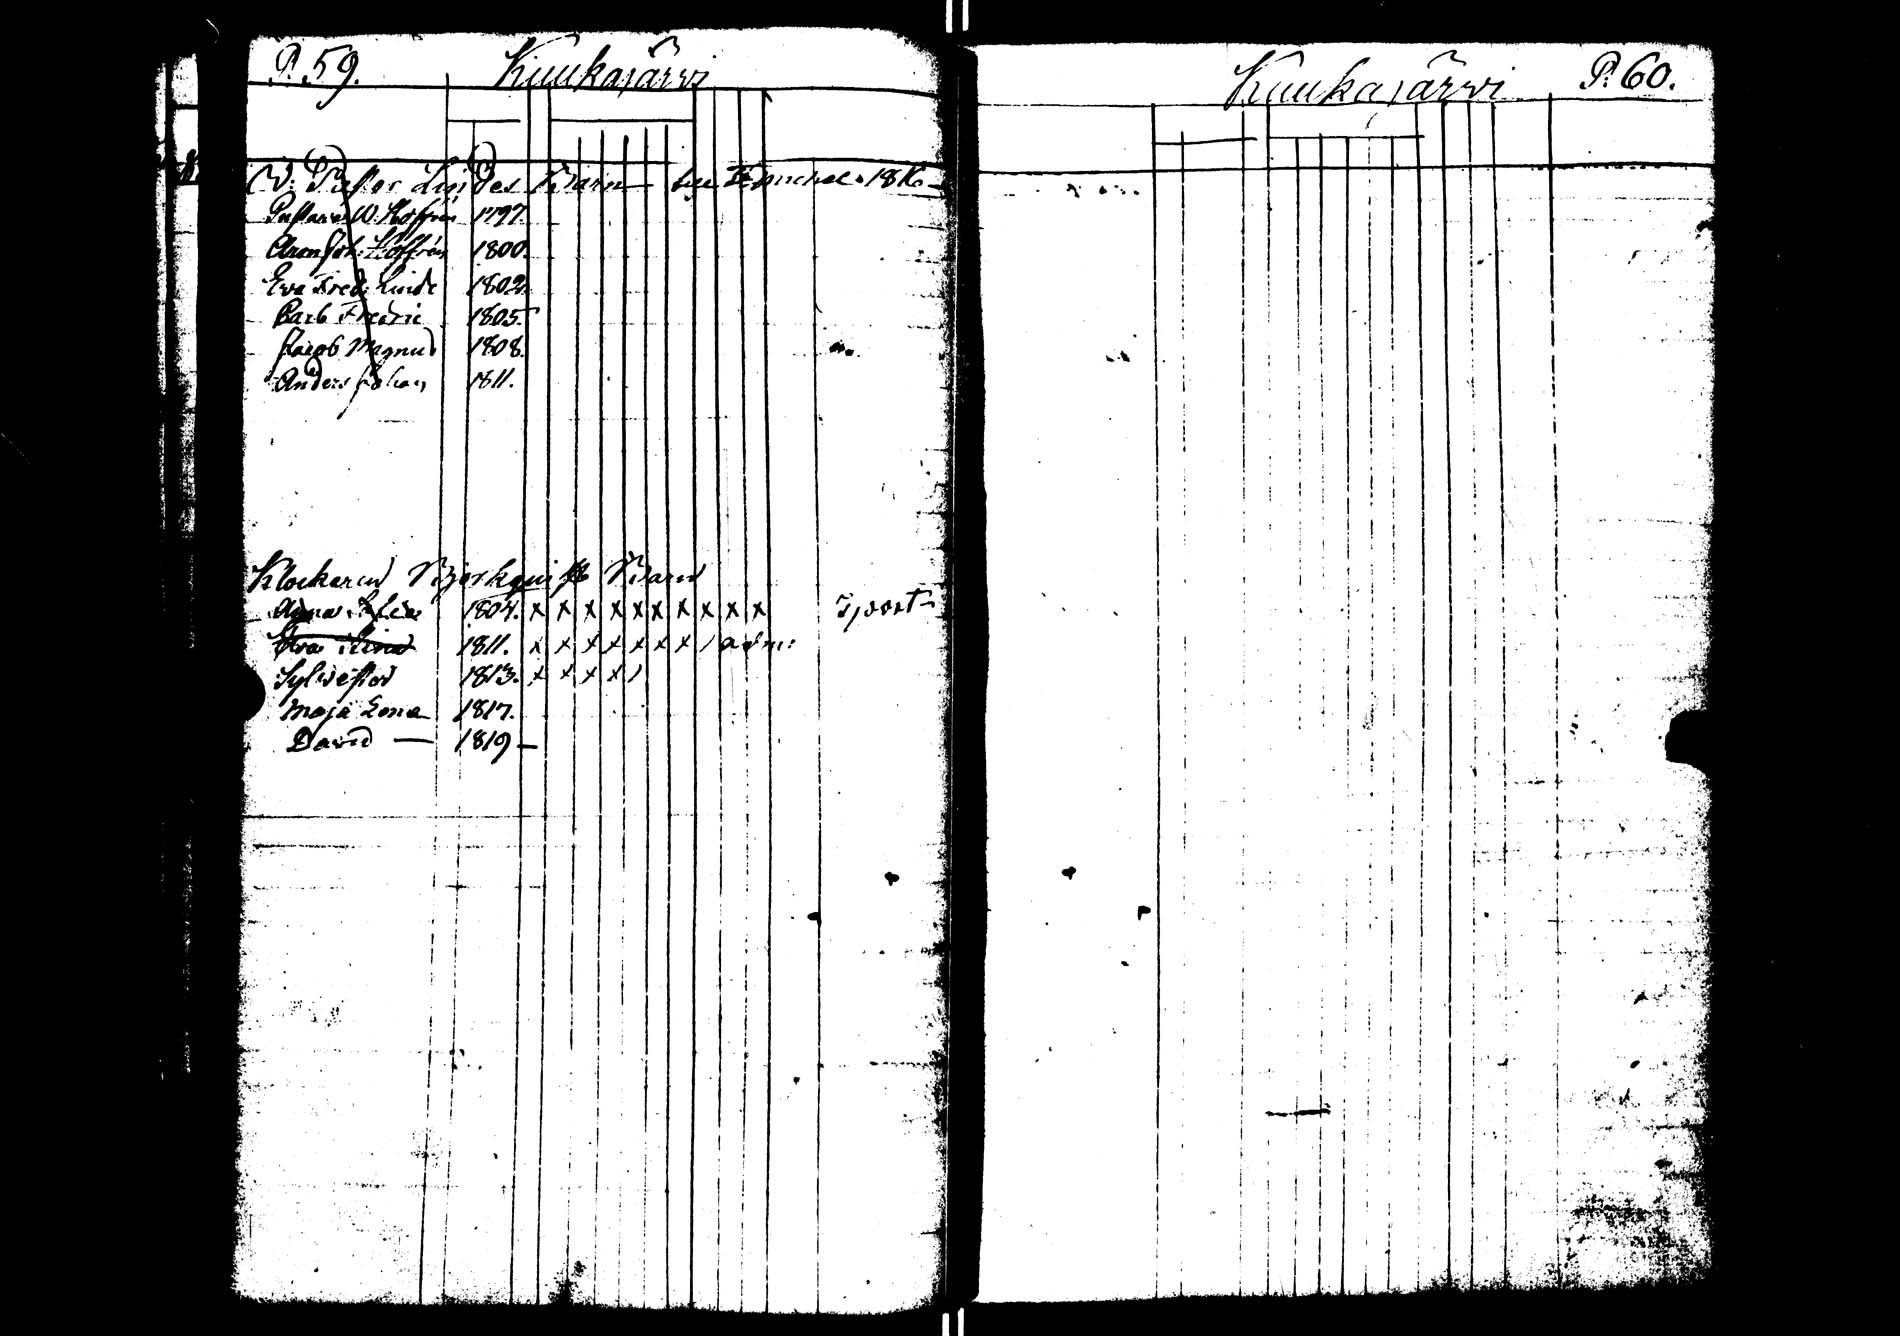 P. 59.
Kuukajärvi
V: Pastor Lindes Barn 1816
Gustava W. Hoffrén 1797.
Aron Joh. Hoffrén 1800.
Eva Fred. Linde 1802.
Carl Fredric 1805.
Jacob Magnus 1808.
Anders Johan 1811.
Klockaren Björkqvists Barn
1804. x x x x x x x x x x
Eva Stina 1811. x x x x x x x / adm:
Sylvester 1813. x x x x /
Maja Lena 1817.
David — 1819 —
Kuukajärvi
P. 60.